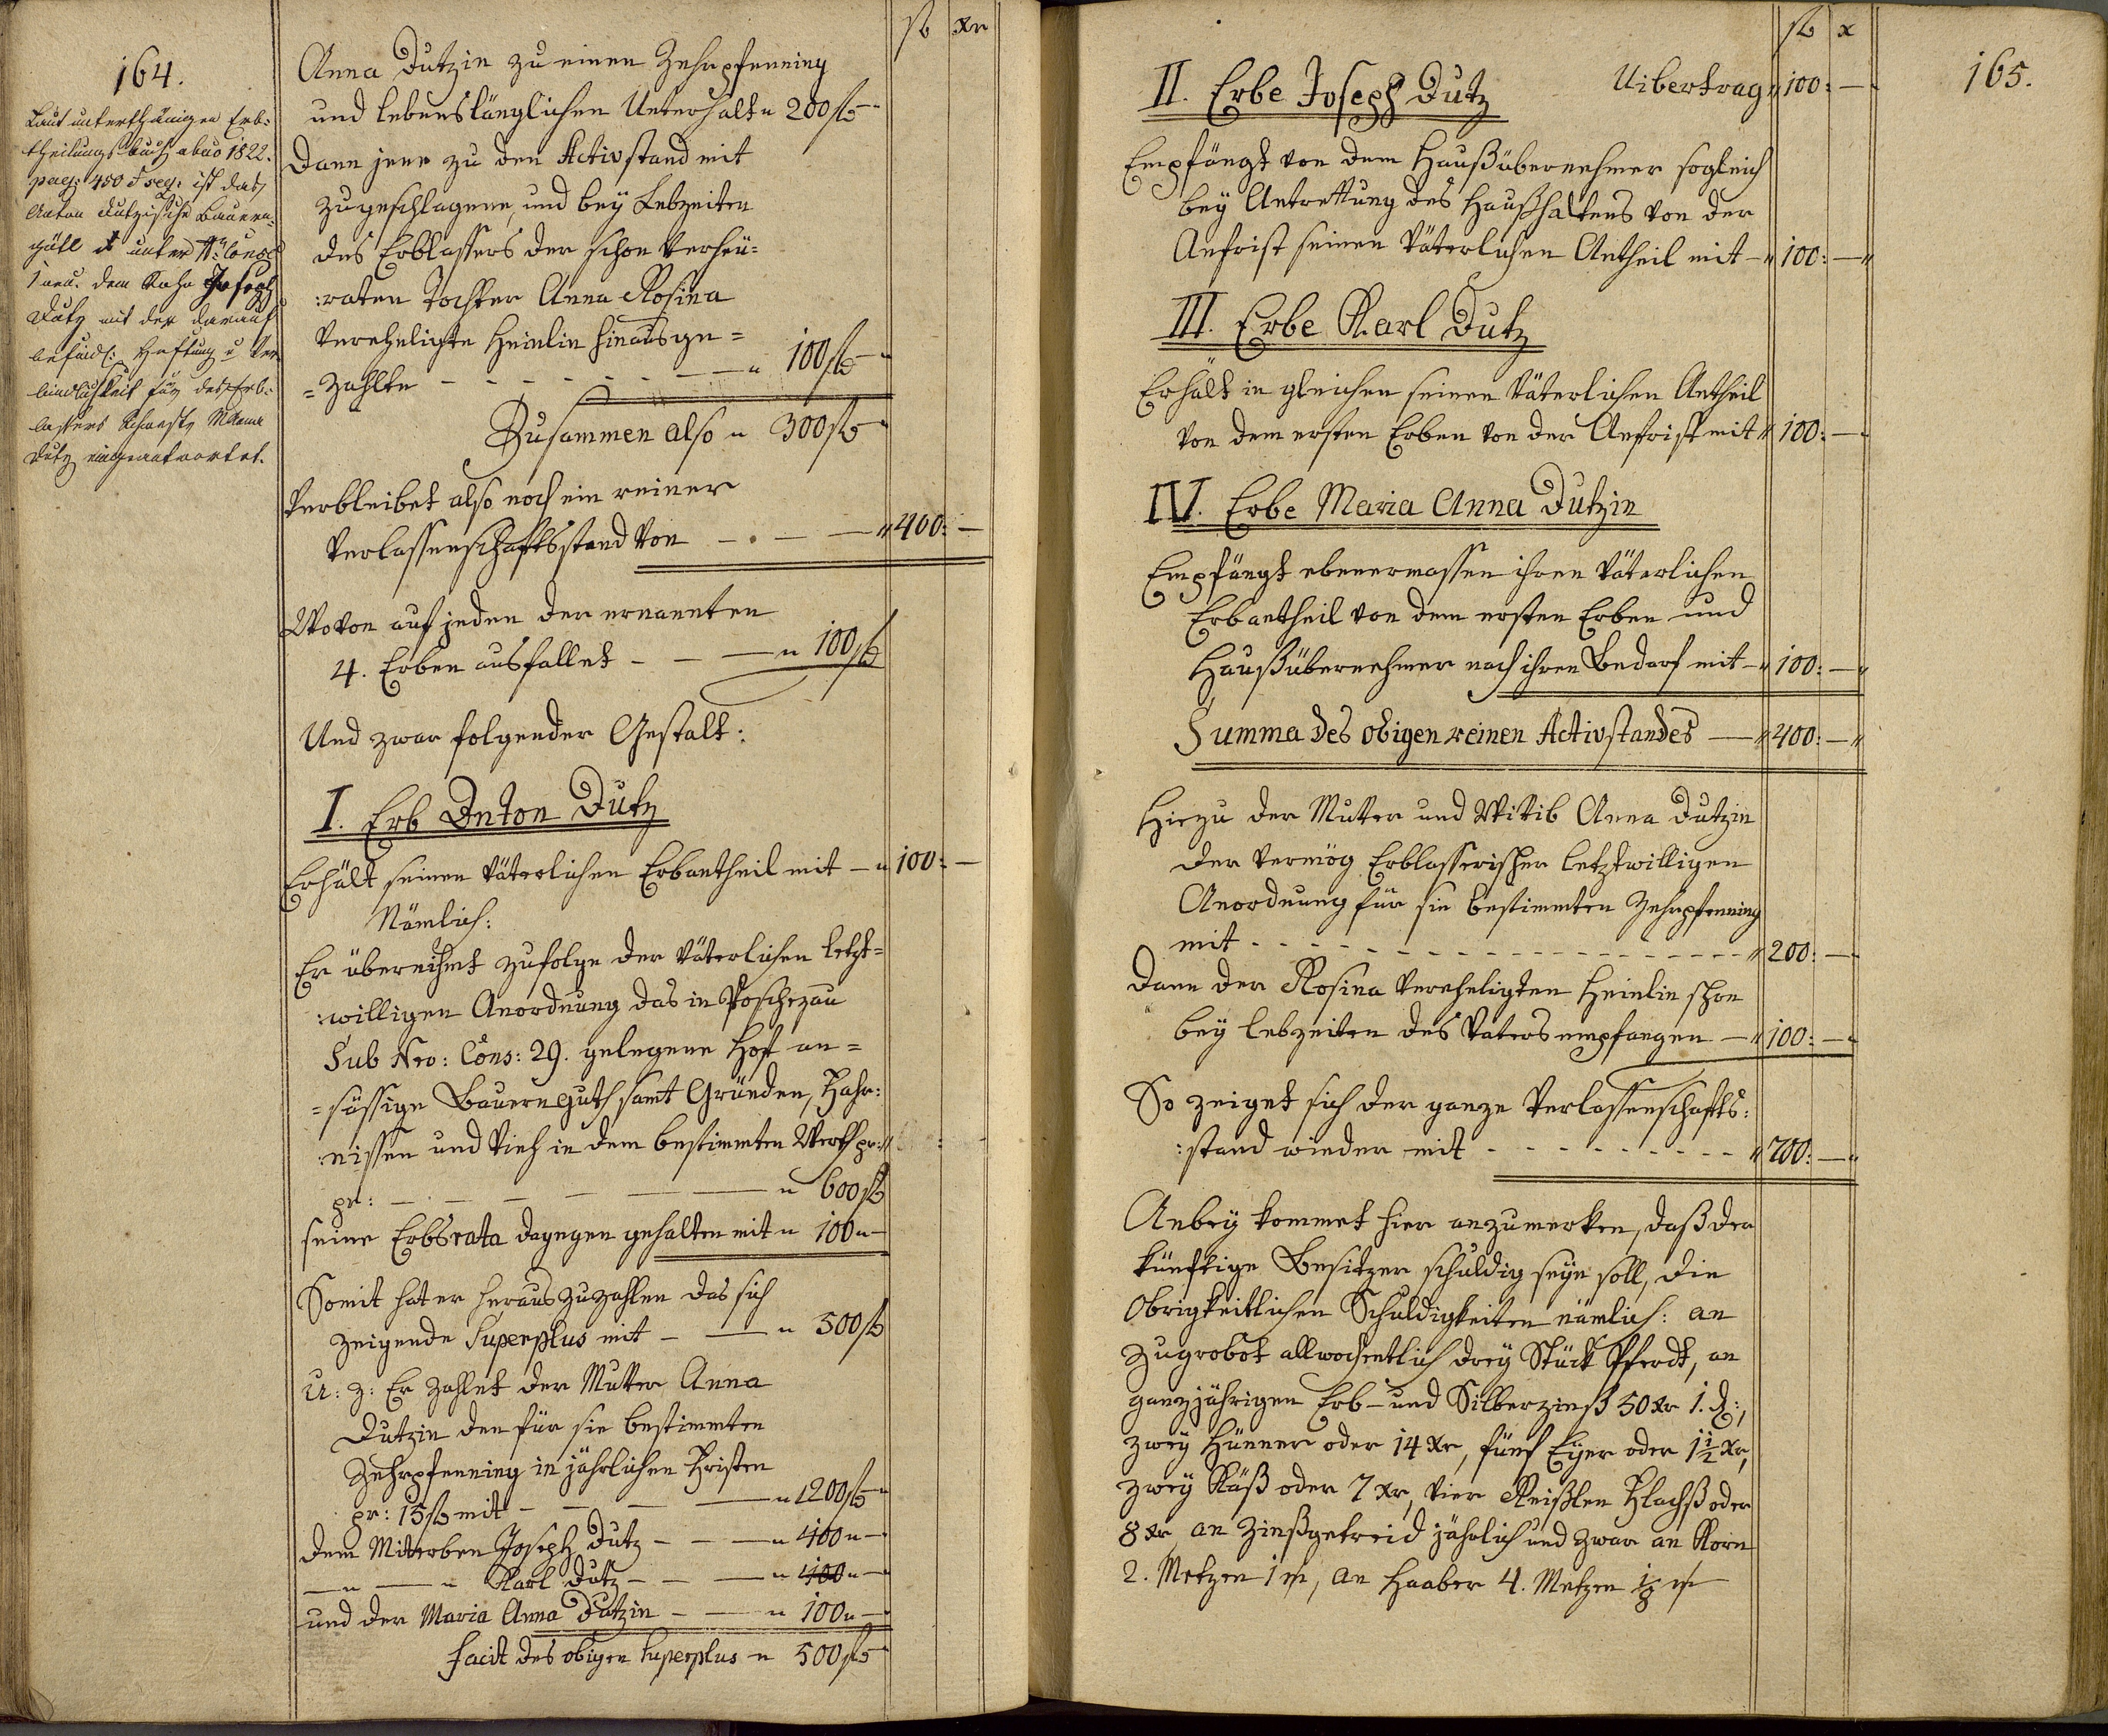 164.
Laut unterthänigen Erb:
theilungsbuch abuo 1822.
pag: 450 & seq: ist das
Anton Dutzische Bauern
gütl unter N: Cons
1 neu. dem Sohn Joseph
Dutz mit der darauf
befindl: Haftung u Ver
bindlichkeit für des Erb:
lassers Schwester MAnna
Dutz eingeantwortet.
fl xr
Anna Dutzin zu einen Zehrpfenning
und lebenslänglichen Unterhalt „ 200 fl –
Dann jene zu den Activstand mit
zugeschlagene, und bey Lebzeiten
des Erblassers der schon verheu=
:raten Tochter Anna Rosina
verehligte Heinlin hinausge=
=zahlte – – – – – – „ 100 fl –
Zusammen also „ 300 fl –
Verbleibet also noch ein reiner
Verlassenschaftsstand von – . – – „ 400: –
Wovon auf jeden der ernannten
4. Erben ausfallet – – – „ 100 fl
Und zwar folgender Gestalt:
I. Erb Anton Dutz
Erhält seinen väterlichen Erbantheil mit – „ 100: –
Nämlich:
Er übernihmt zufolge der väterlichen letzt=
:willigen Anordnung das in Poschezau
Sub Nro: Cons: 29. gelegene Hof an=
=sässige Bauernguth samt Gründen, Fahr:
:nissen und Vieh in dem bestimmten Werth pr:
pr: – – – – – „ 600 fl
seine Erbsrata dagegen gehalten mit „ 100 „ –
Somit hat er herauszuzahlen das sich
zeigende Superplus mit – – „ 500 fl
U: z: Er zahlet der Mutter Anna
Dutzin den für sie bestimmten
Zehrpfenning in jährlichen Fristen
pr: 15 fl mit – – – – „ 200 fl –
Dem Miterben Joseph Dutz – – – „ 100 „ –
– „ – „ Karl Dutz – – – „ 100 „ –
und der Maria Anna Dutzin – – „ 100 „ –
Facit des obigen Superplus „ 500 fl –
fl x
165.
II. Erbe Joseph Dutz Uibertrag „ 100: –
Empfängt von dem Haußübernehmer sogleich
bey Antrettung des Haußhaltens von der
Anfrist seinen väterlichen Antheil mit – „ 100: – „
III. Erbe Karl Dutz
Erhält in gleichen seinen väterlichen Antheil
von dem ersten Erben von der Anfrist mit „ 100: –
IV. Erbe Maria Anna Dutzin
Empfängt ebenermassen ihren väterlichen
Erbantheil von dem ersten Erben und
Haußübernehmer nach ihren Bedarf mit – „ 100: – „
Summa des obigen reinen Activstandes – „ 400: – „
Hiezu der Mutter und Witib Anna Dutzin
der vermög Erblasserischer letztwilligen
Anordnung für sie bestimmten Zehrpfenning
mit – – – – – – – – – – – „ 200: –
Dann der Rosina verehligten Heinlin schon
bey lebzeiten des Vaters empfangen – „ 100: – „
So zeiget sich der ganze Verlassenschafts:
:stand wieder mit – – – – – – – „ 700: – „
Anbey kommet hier anzumerken, daß der
künftige Besitzer schuldig seyn soll, die
Obrigkeitlichen Schuldigkeiten nämlich: an
Zugrobot allwochentlich drey Stück Pferdt, an
ganzjährigen Erb- und Silberzinß 50 xr 1. d:,
zwey Hünner oder 14 xr, fünf Eyer oder 1 1/2 xr,
zwey Käß oder 7 xr, vier Reißlen Flachß oder
8 xr an Zinßgetreid jährlich und zwar an Korn
2. Metzen 1 m, an Haaber 4. Metzen 1/8 m